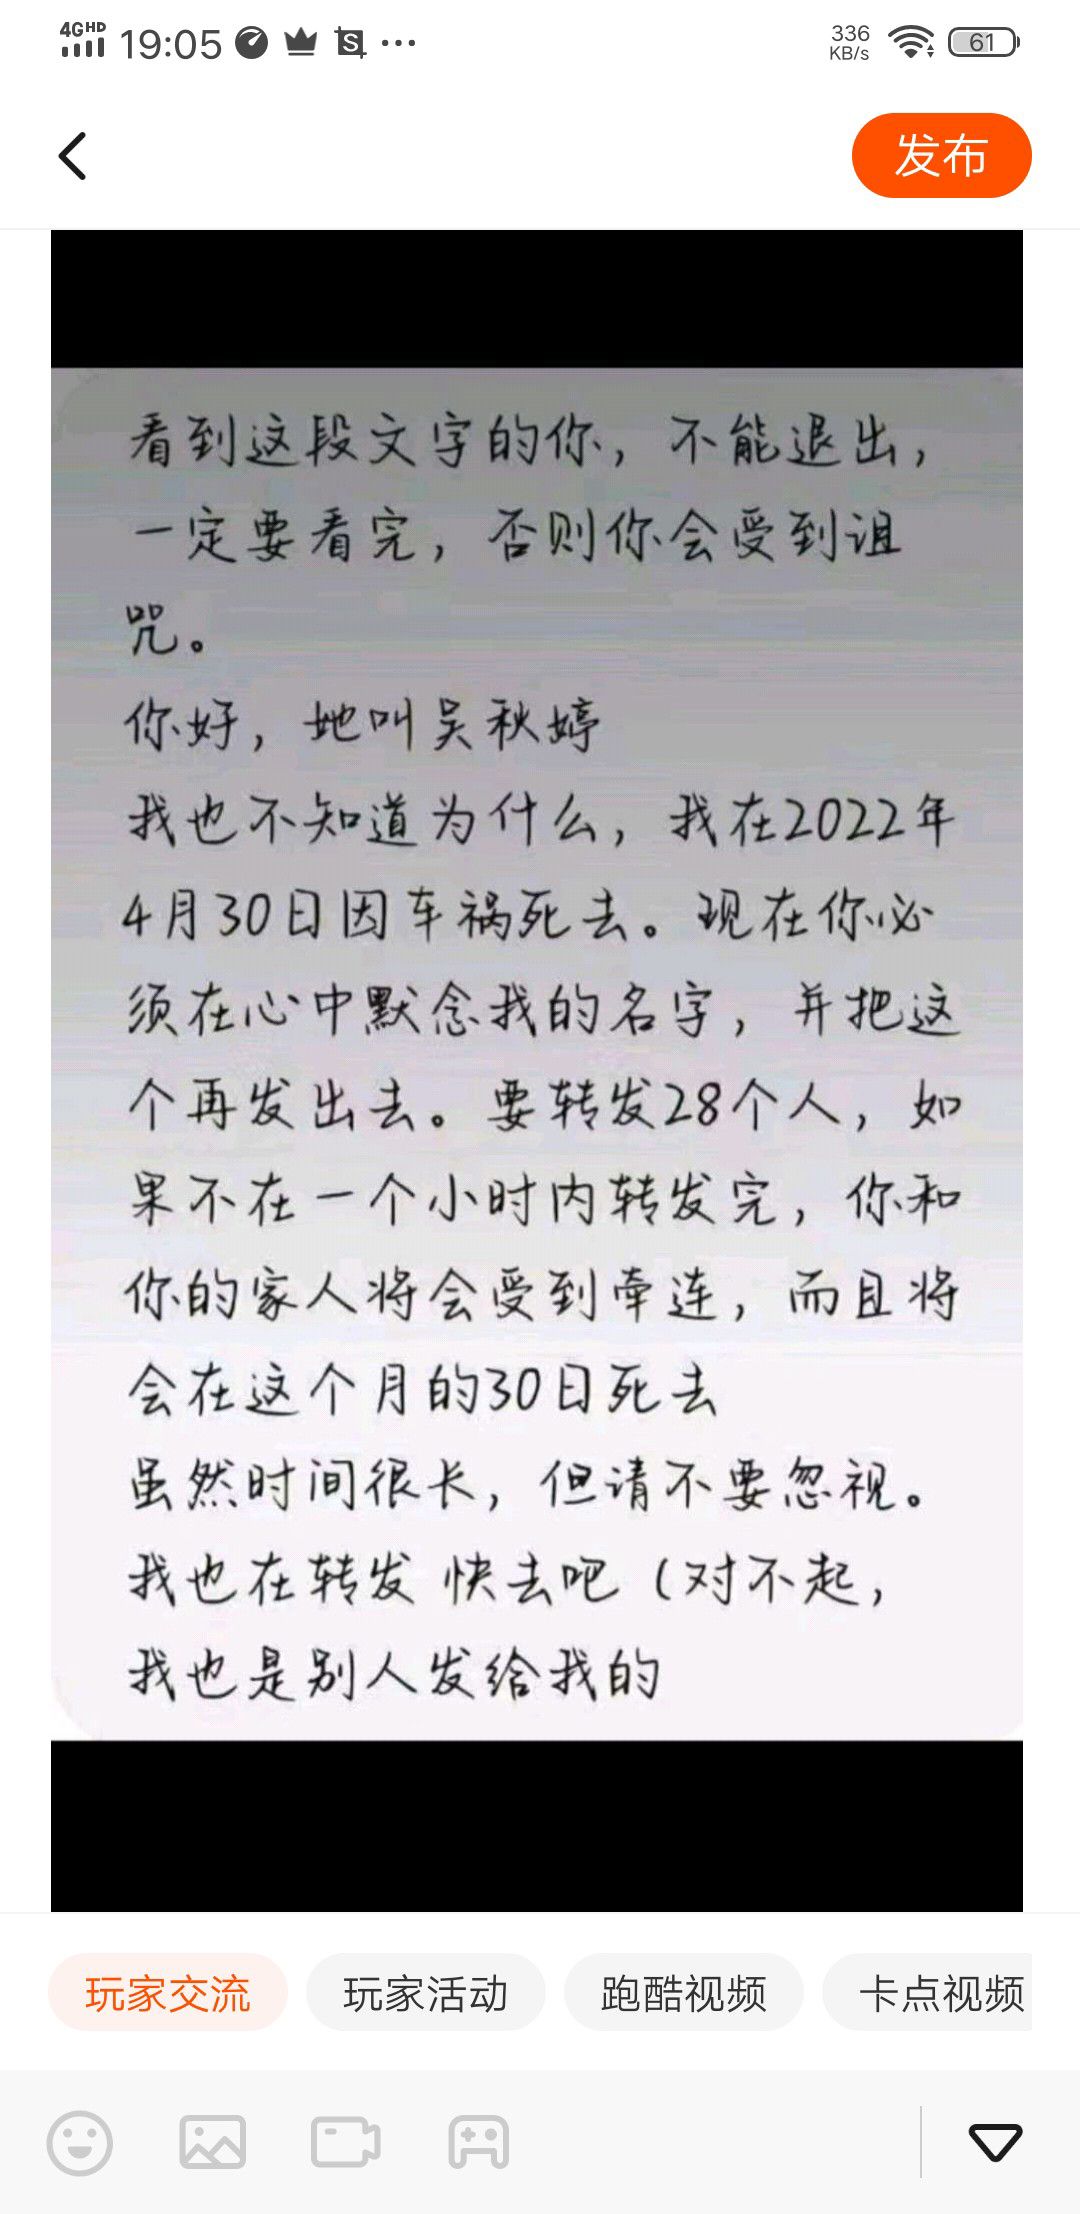 4G HD 19:05 336 KB/s 61
发布
看到这段文字的你，不能退出，
一定要看完，否则你会受到诅
咒。
你好，她叫吴秋婷
我也不知道为什么，我在2022年
4月30日因车祸死去。现在你必
须在心中默念我的名字，并把这
个再发出去。要转发28个人，如
果不在一个小时内转发完，你和
你的家人将会受到牵连，而且将
会在这个月的30日死去
虽然时间很长，但请不要忽视。
我也在转发 快去吧（对不起，
我也是别人发给我的
玩家交流 玩家活动 跑酷视频 卡点视频